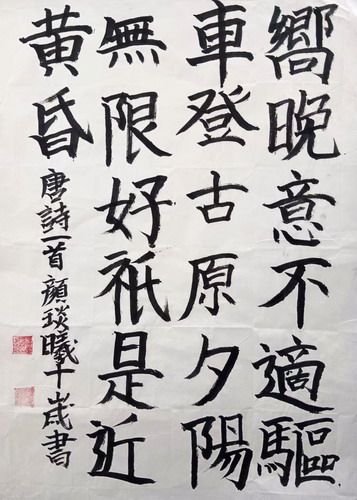 嚮晚意不適驅
車登古原夕陽
無限好祇是近
黃昏
唐詩一首顏琰曦十歲書